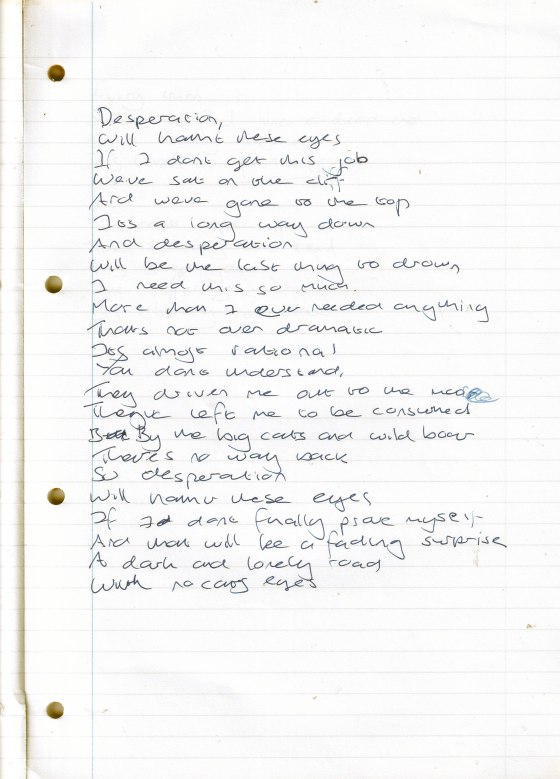 Desperation,
Will haunt these eyes
If I dont get this job
Weve sat on the cliff
And weve gone to the top
Its a long way down
And desperation
Will be the last thing to drown
I need this so much.
More than I ever needed anything
Thats not over dramatic
Its almost rational
You dont understand,
They driven me out to the
They've left me to be consumed
By the big cats and wild boar
Theres no way back
So desperation
Will haunt these eyes
If I dont finally prove myself
And that will be a fading surprise
A dark and lonely road
With no cats eyes